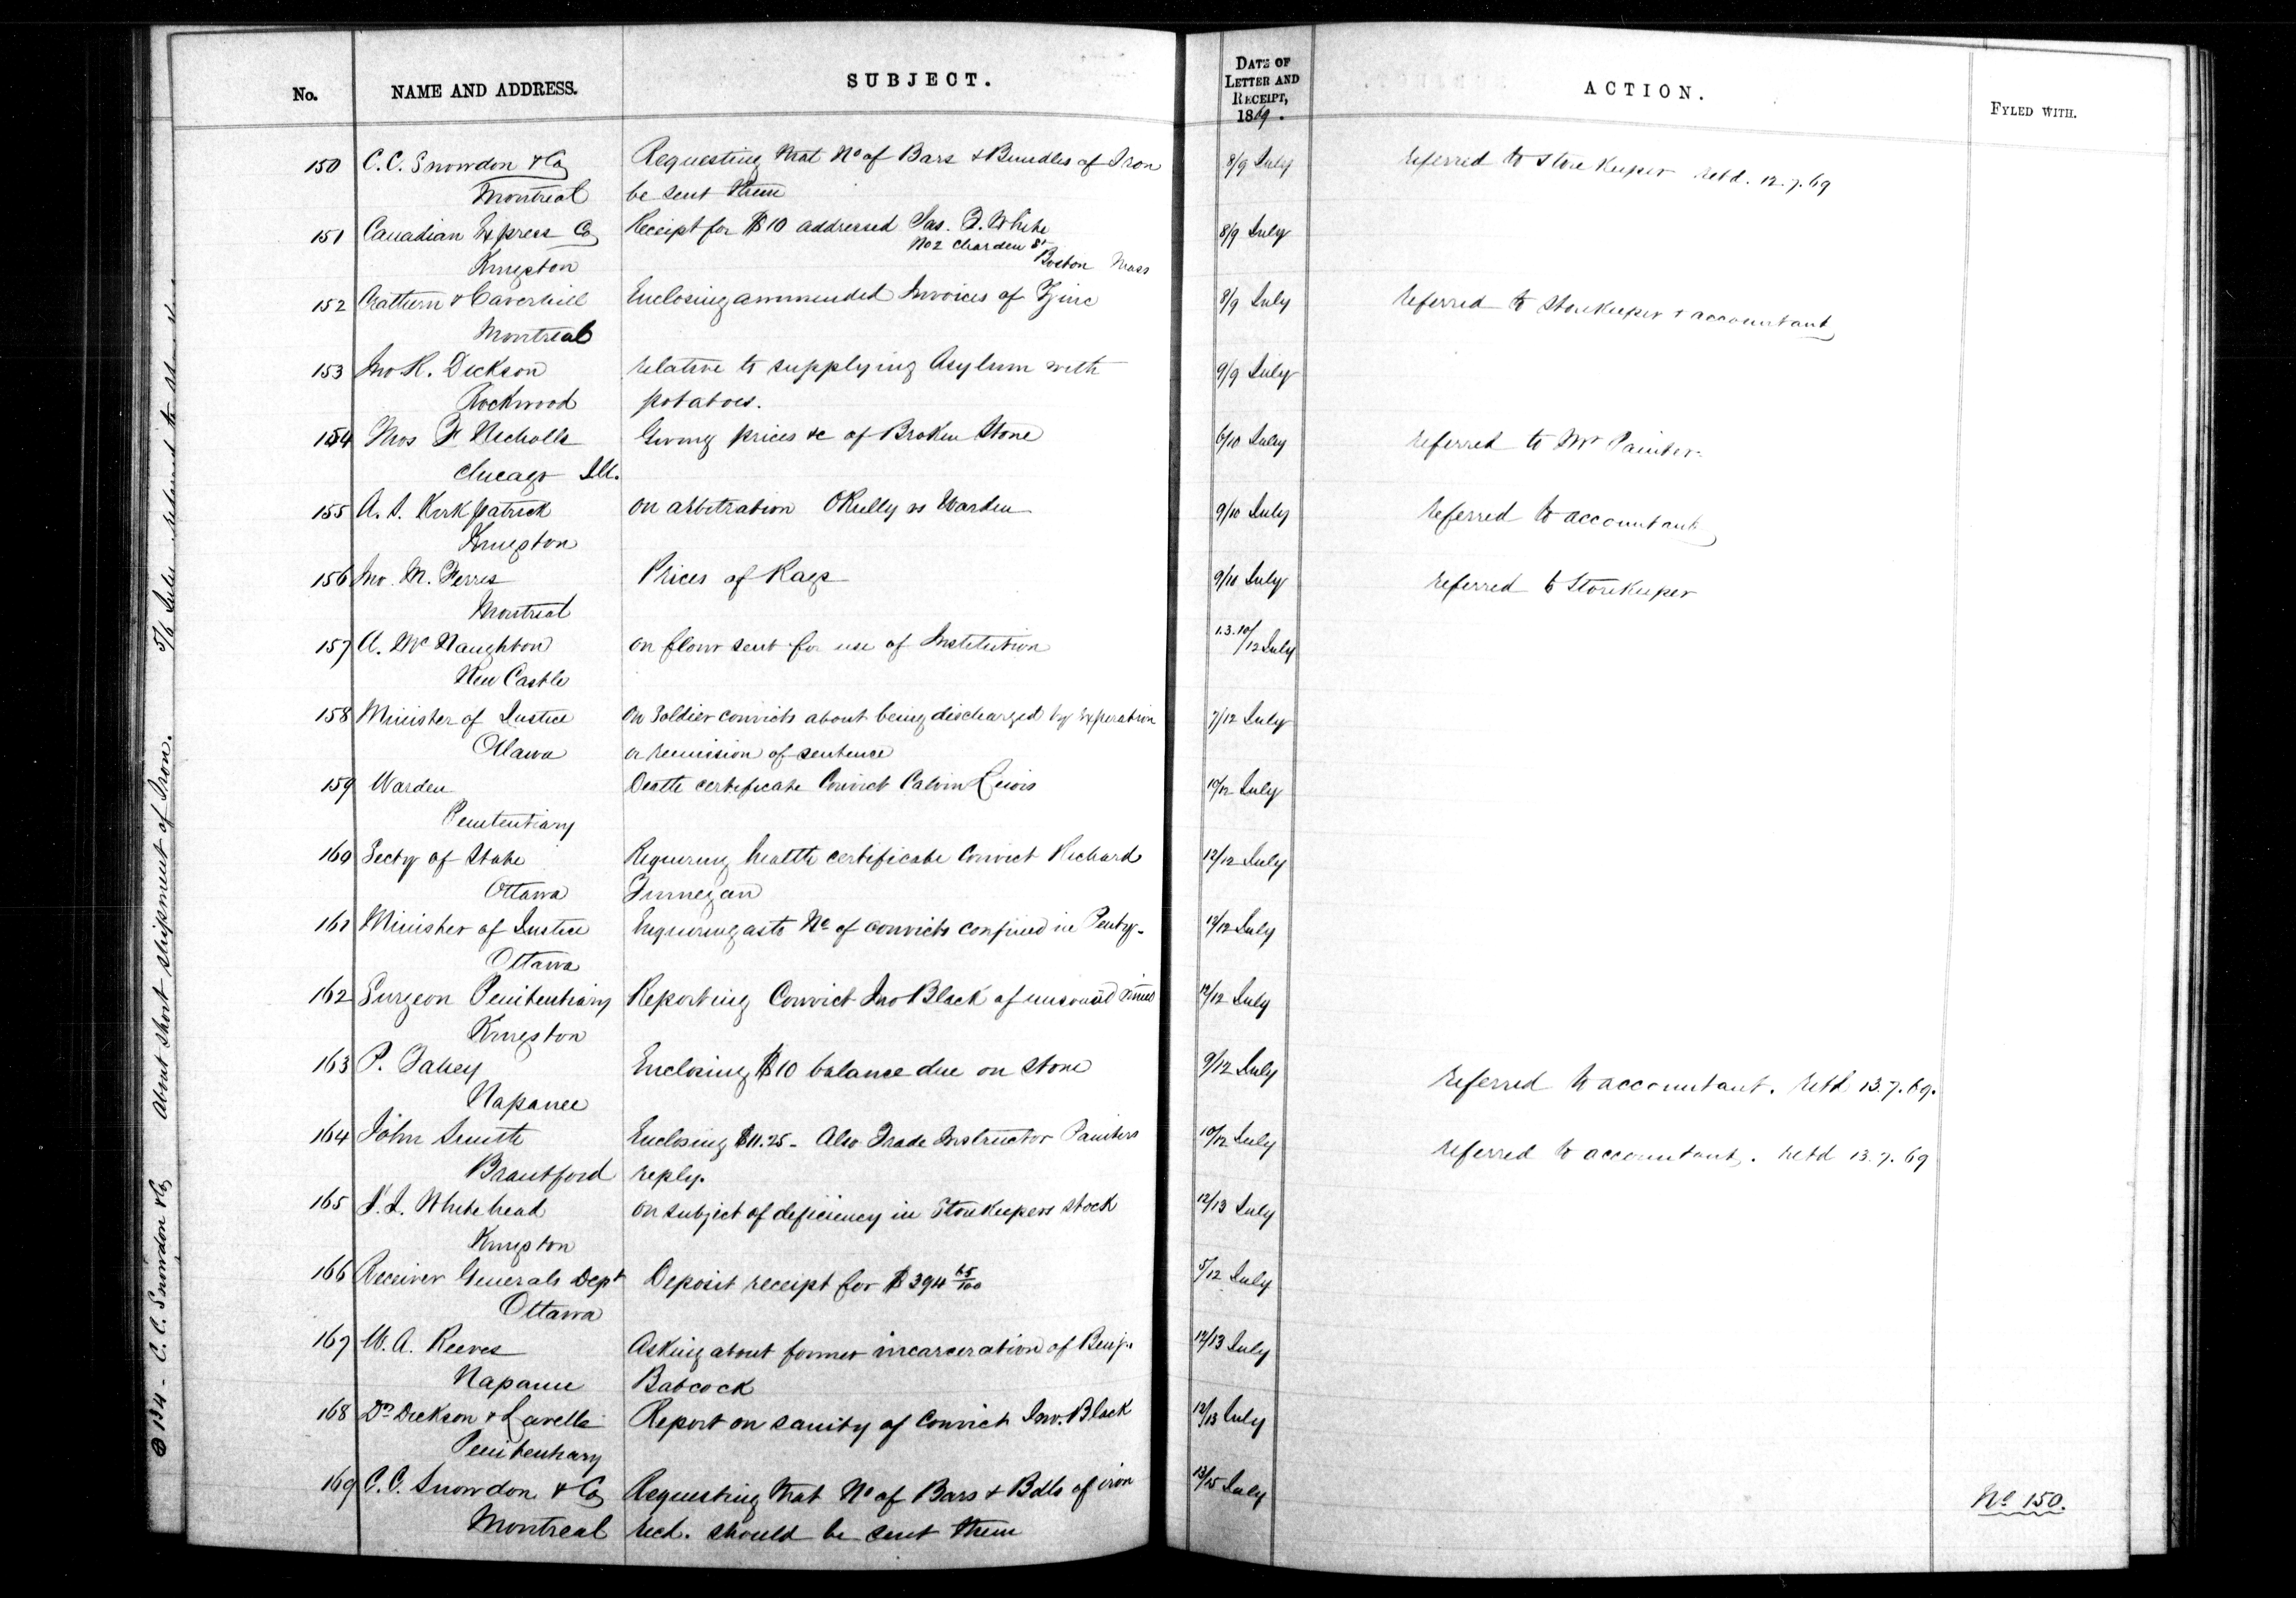 No. NAME AND ADDRESS. SUBJECT. DATE OF LETTER AND RECEIPT, 1869. ACTION. FYLED WITH.
150 C. C. Snowdon & Co Requesting that No of Bars & Bundles of Iron 8/9 July referred to Store Keeper retd. 12.7.69
Montreal be sent them
151 Canadian Express Co Receipt for $10 addressed Jas. F. White 8/9 July
No 2 Charden St
Kingston Boston Mass
152 & Caverhill Enclosing ammended Invoices of Zinc 8/9 July referred to Storekeeper & accountant
Montreal
153 Jno R. Dickson relative to supplying Asylum with 9/9 July
Rockwood potatoes.
154 Thos F Nicholls Giving prices &c of Broken Stone 6/10 July referred to Mr Painter
Chicago Ill.
155 A. S. Kirkpatrick on arbitration OReilly vs Warden 9/10 July referred to accountant
Kingston
156 Jno. M. Ferres Prices of Rags 9/10 July referred to Storekeeper
Montreal
157 A. McNaughton on flour sent for use of Institution 1.3.10/12 July
New Castle
158 Minister of Justice On Soldier convicts about being discharged by Expiration 7/12 July
Ottawa or remission of sentence
159 Warden Death certificate Convict Calvin Lewis 10/12 July
Penitentiary
160 Secty of State Requiring health certificate Convict Richard 12/12 July
Ottawa Finnegan
161 Minister of Justice Enquiring as to No of convicts confined in Penty. 12/12 July
Ottawa
162 Surgeon Penitentiary Reporting Convict Jno Black of unsound mind 12/12 July
Kingston
163 P. Fahey Enclosing $10 balance due on stone 9/12 July referred to accountant. retd 13.7.69.
Napanee
164 John Smith Enclosing $11.25 - Also Trade Instructor Painters 10/12 July referred to accountant. retd 13.7.69
Brantford reply.
165 Whitehead on subject of deficiency in Storekeepers stock 12/13 July
Kingston
166 Receiver Generals Dept Deposit receipt for $394 65/100 5/12 July
Ottawa
167 W. A. Reeves Asking about former incarceration of Benj. 12/13 July
Napanee Babcock
168 Drs Dickson & Lavell Report on sanity of Convict Jno. Black 12/13 July
Penitentiary
169 C. C. Snowdon & Co Requesting that No of Bars & Bdls of iron 13/15 July No 150.
Montreal recd. should be sent them
134 - C. C. Snowdon & Co About short shipment of Iron. 5/6 July referred to